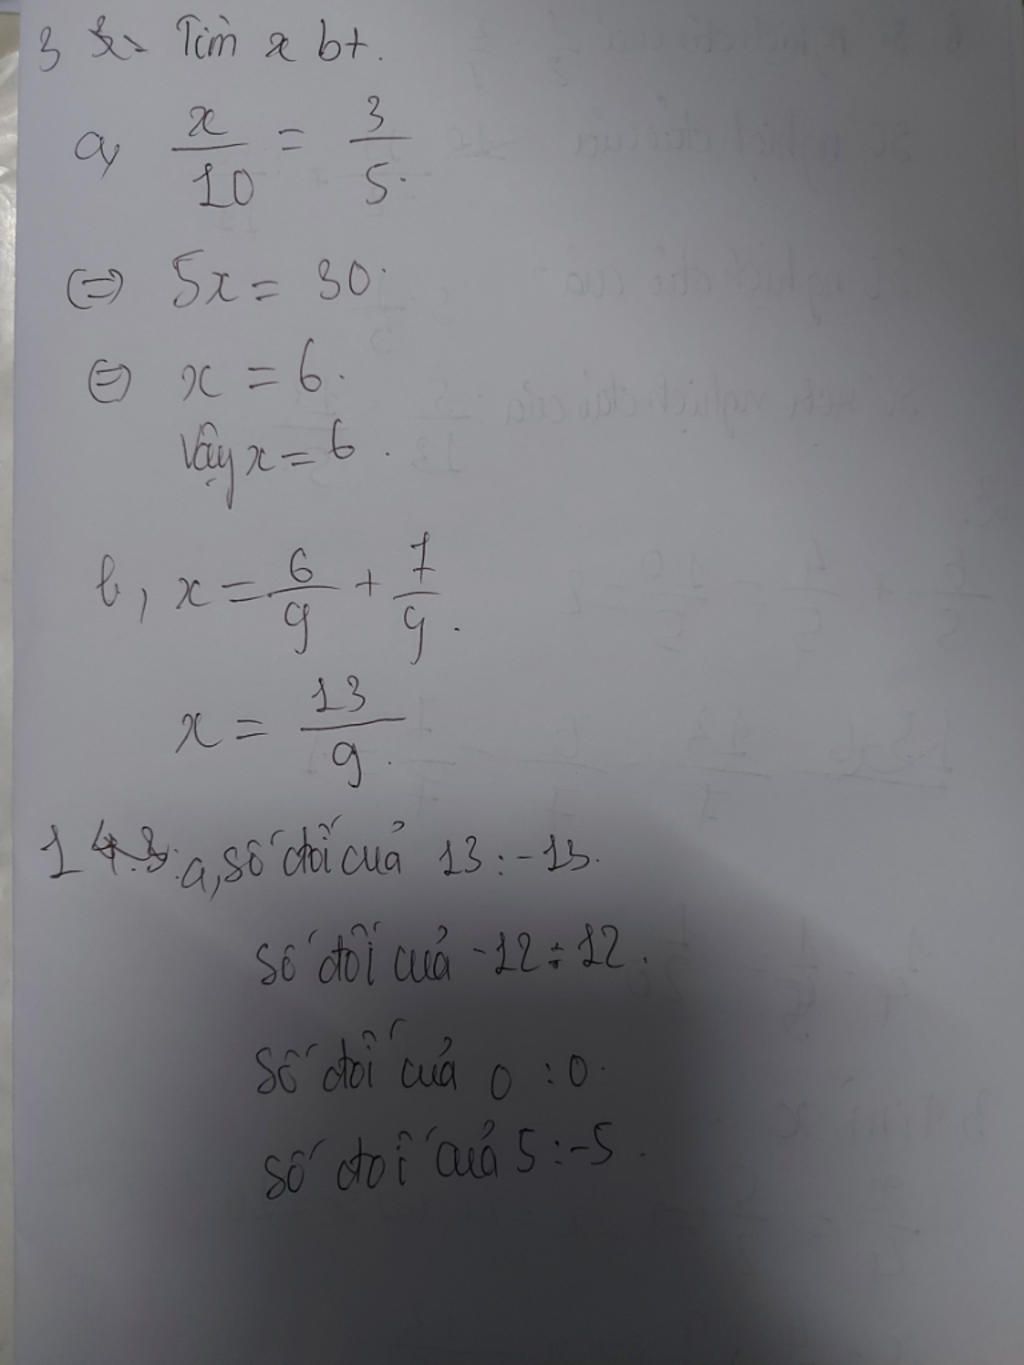 3 Tìm x bt.
a, x/10 = 3/5.
(=) 5x = 30.
(=) x = 6.
Vậy x = 6.
b, x = 6/9 + 7/9.
x = 13/9.
1 a, số đối của 13 : -13.
số đối của -12 : 12.
số đối của 0 : 0.
số đối của 5 : -5.